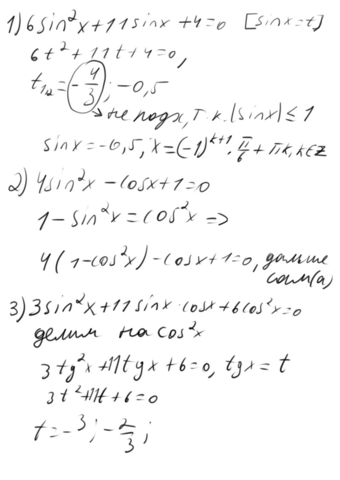 1) 6sin²x+11sinx+4=0 [sinx=t]
6t²+11t+4=0,
t₁,₂=-4/3; -0,5
→ не подх, т.к. |sinx|≤1
sinx=-0,5, x=(-1)^(k+1)·π/6+πk, k∈Z
2) 4sin²x-cosx+1=0
1-sin²x=cos²x =>
4(1-cos²x)-cosx+1=0, дальше
сам(а)
3) 3sin²x+11sinx·cosx+6cos²x=0
делим на cos²x
3tg²x+11tgx+6=0, tgx=t
3t²+11t+6=0
t=-3; -2/3;